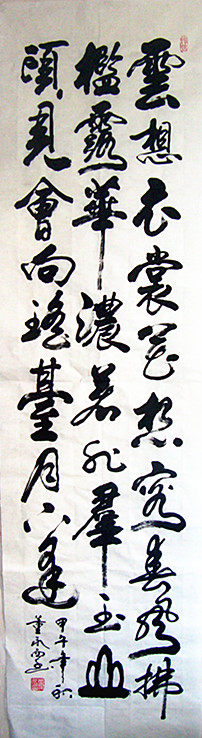 雲想衣裳花想容春風拂
檻露華濃若非羣玉山
頭見會向瑤臺月下逢
甲午年秋